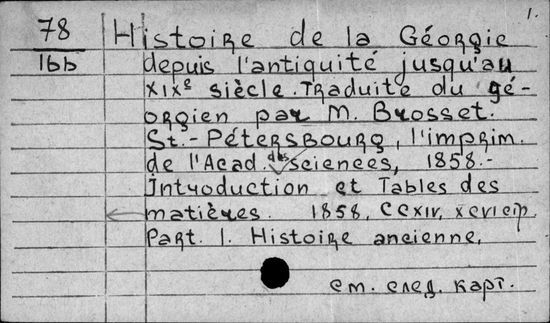 1.
78 Histoire de la Géorgie
16b depuis l'antiquité jusqu'au
XIXe siècle. Traduite du gé-
orgien par M. Brosset.
St.-Pétersbourg, l'imprim.
de l'Acad. des sciences, 1858.-
Introduction et Tables des
matières. 1858, CCXIV, XCVI
Part. 1. Histoire ancienne,
см. след. карт.